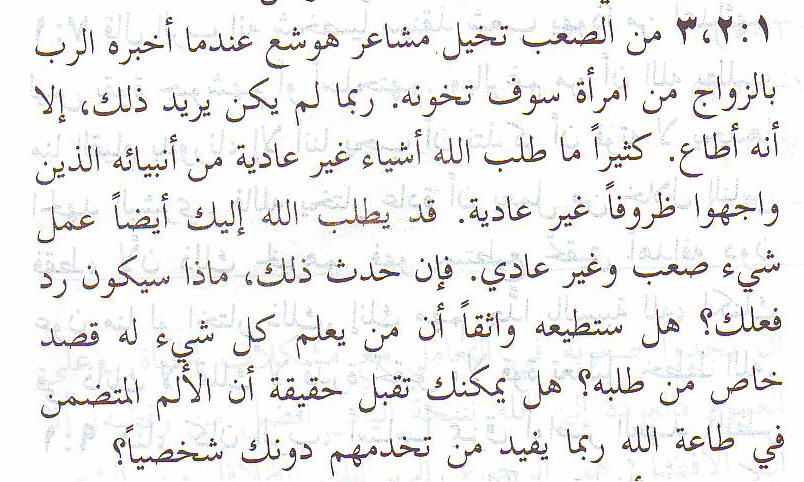 ٣،٢:١ من الصعب تخيل مشاعر هوشع عندما أخبره الرب
بالزواج من امرأة سوف تخونه. ربما لم يكن يريد ذلك، إلا
أنه أطاع. كثيراً ما طلب الله أشياء غير عادية من أنبيائه الذين
واجهوا ظروفاً غير عادية. قد يطلب الله إليك أيضاً عمل
شيء صعب وغير عادي. فإن حدث ذلك، ماذا سيكون رد
فعلك؟ هل ستطيعه واثقاً أن من يعلم كل شيء له قصد
خاص من طلبه؟ هل يمكنك تقبل حقيقة أن الألم المتضمن
في طاعة الله ربما يفيد من تخدمهم دونك شخصياً؟